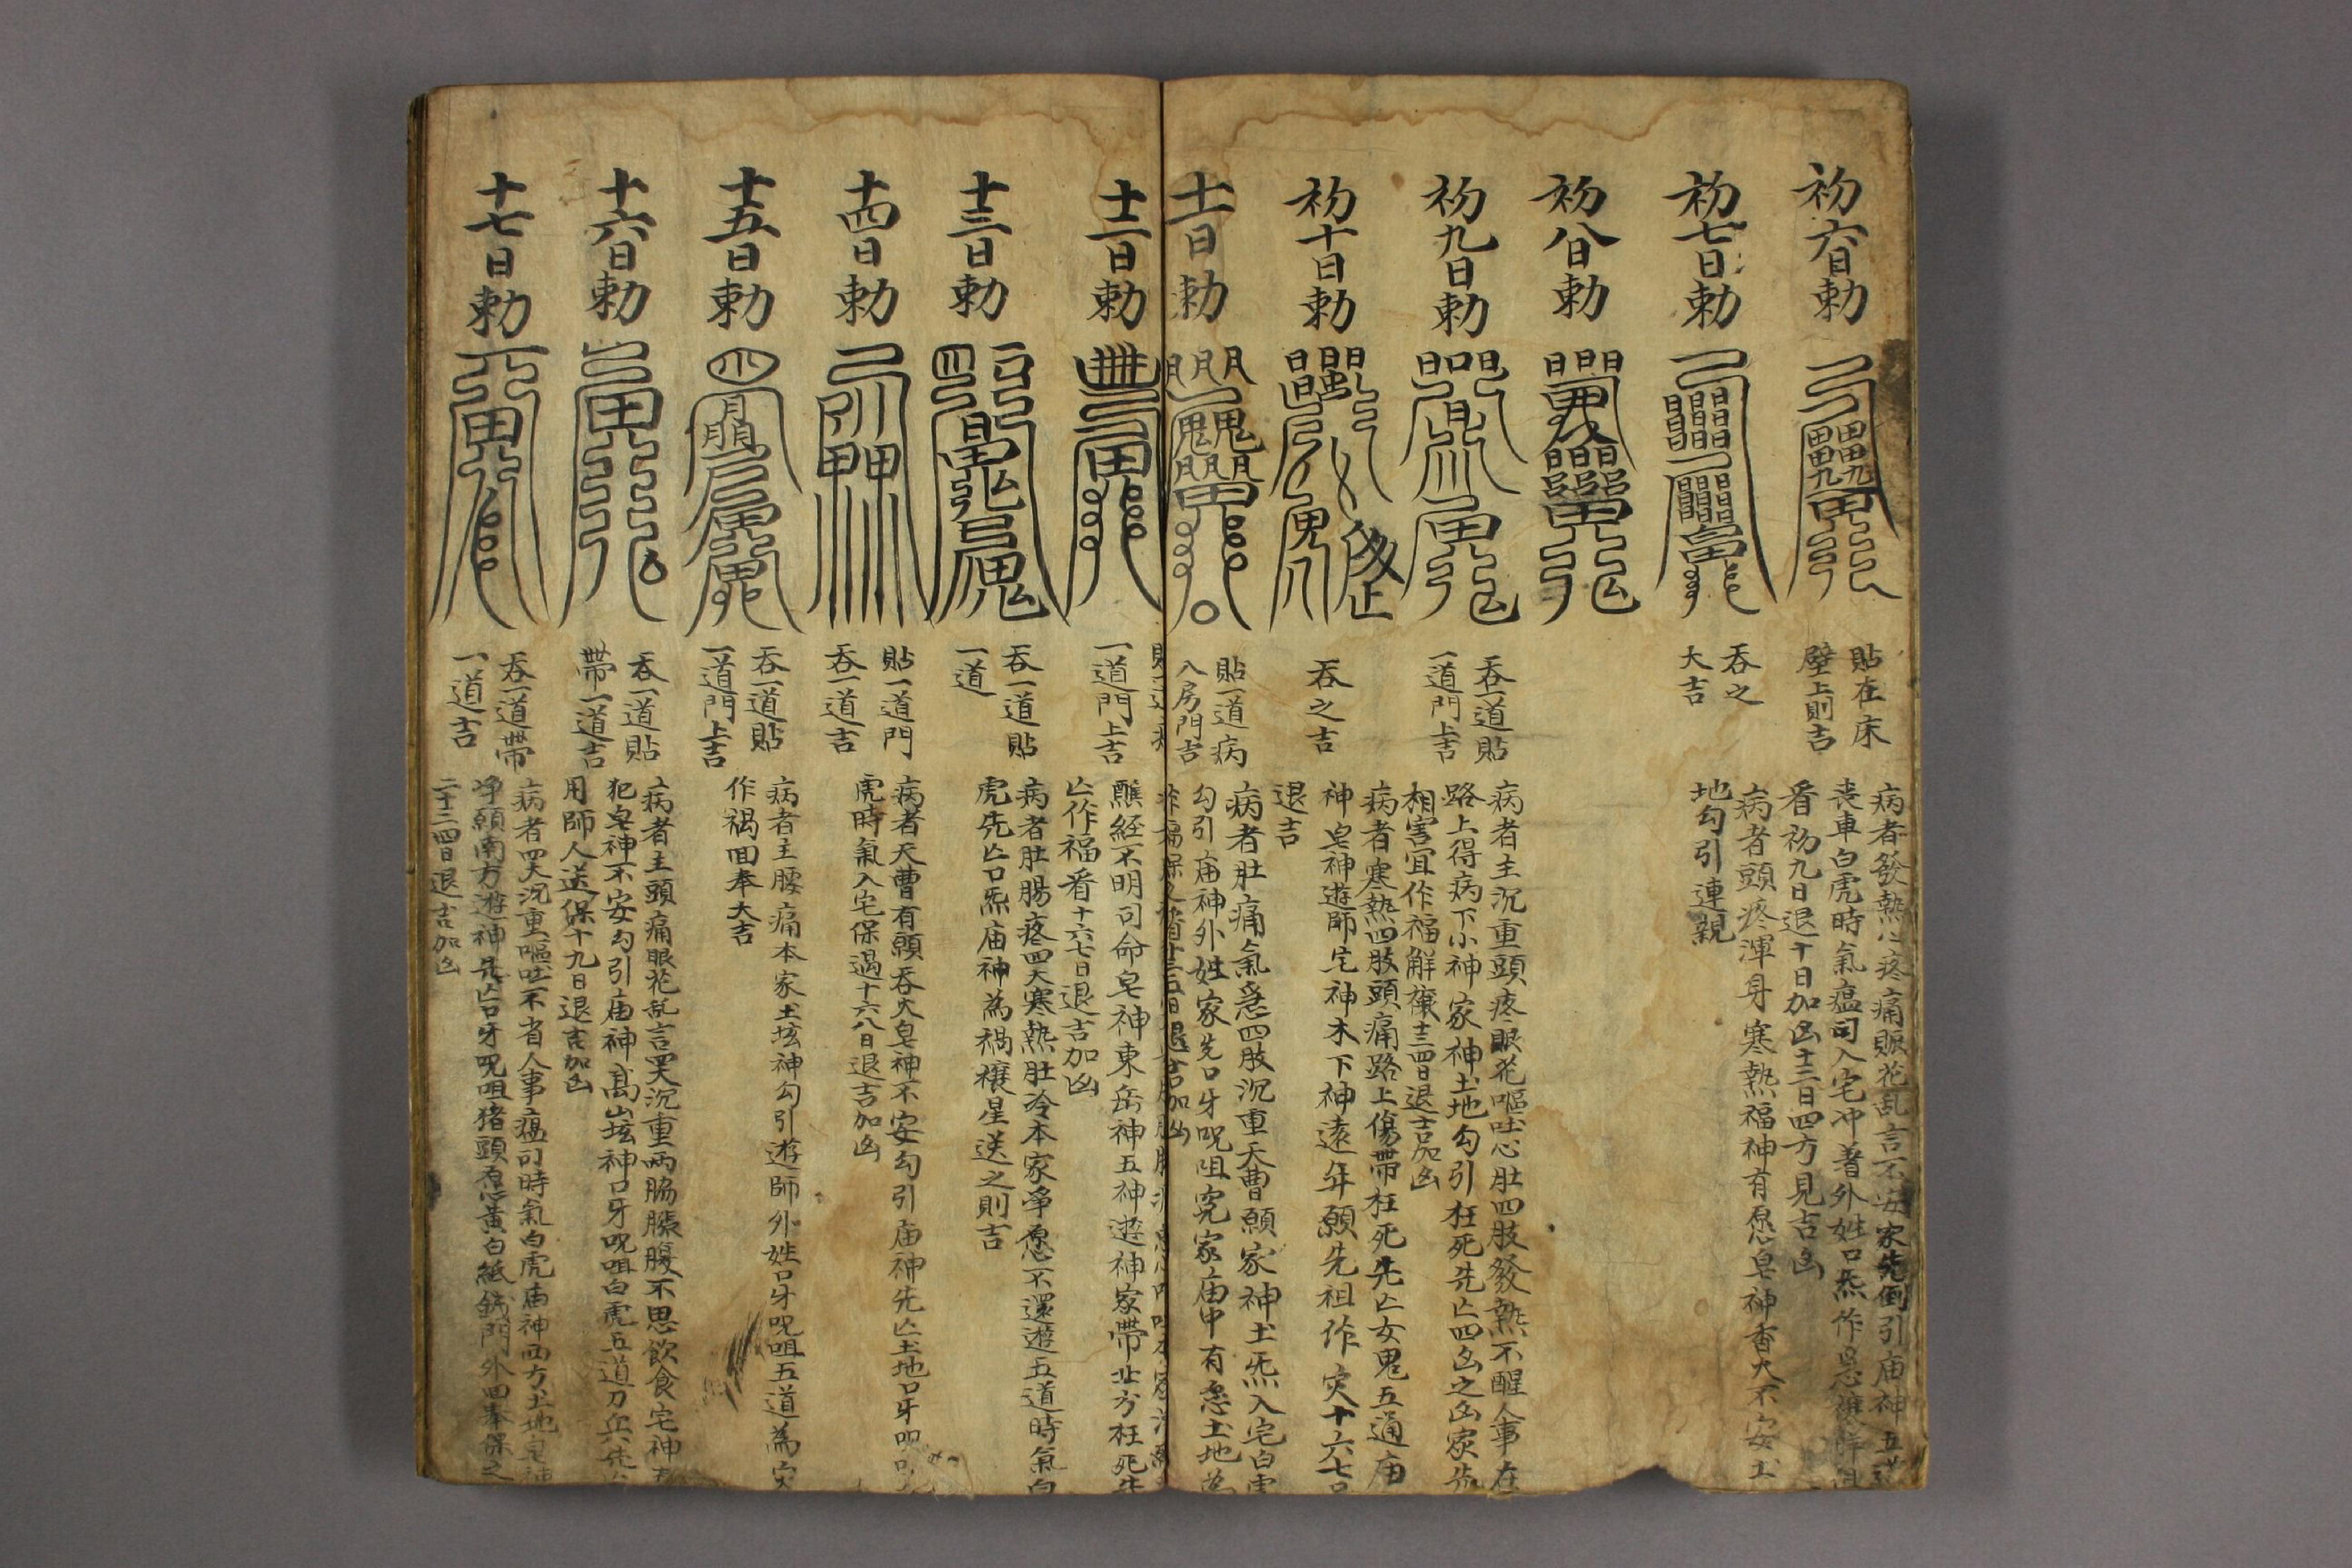 初六日勅
貼在床
壁上則吉
病者發熱心疼痛眼花乱言不安家先倒引庙神五道
丧車白虎時氣瘟司入宅冲着外姓口炁作
看初九日退十日加凶十三日四方見吉凶
初七日勅
吞之
大吉
病者頭疼渾身寒熱福神有愿皂神香火不安土
地勾引連親
初八日勅
初九日勅
吞一道貼
一道門上吉
病者主沉重頭疼眼花嘔吐心肚四肢發熱不醒人事在
路上得病下小神家神土地勾引枉死先亡四凶之凶家先
相害宜作福解禳十三四日退吉加凶
初十日勅
吞之吉
病者寒熱四肢頭痛路上傷帶枉死先亡女鬼五通庙
神皂神遊師宅神木下神遠年願先祖作灾十六七日
退吉
十一日勅
貼一道病
人房門吉
病者肚痛氣急四肢沉重天曹願家神土炁入宅白虎
勾引庙神外姓家先口牙呪咀究家庙中有愿土地為
十二日勅
一道門上吉
醮経不明司命皂神東岳神五神遊神家帶北方枉死先
亡作福看十六七日退吉加凶
十三日勅
吞一道貼
一道
病者肚腸疼四大寒熱肚冷本家爭愿不還遊五道時氣白
虎先亡口炁庙神為禍禳星送之則吉
十四日勅
貼一道門
吞一道吉
病者天曹有願吞火皂神不安勾引庙神先亡土地口牙呪
虎時氣入宅保過十六八日退吉加凶
十五日勅
吞一道貼
一道門上吉
病者主腰痛本家土坛神勾引遊師外姓口牙呪咀五道為灾
作禍回奉大吉
十六日勅
吞一道貼
帶一道吉
病者主頭痛眼花乱言四大沉重两脇脹腹不思飲食宅神
犯皂神不安勾引庙神高山坛神口牙呪咀白虎五道刀兵先
用師人送保十九日退吉加凶
十七日勅
吞一道帶
一道吉
病者四大沉重嘔吐不省人事瘟司時氣白虎庙神西方土地皂神
净願南方遊神是亡口牙呪咀猪頭愿黄白紙錢門外回奉保之
二十三四日退吉加凶